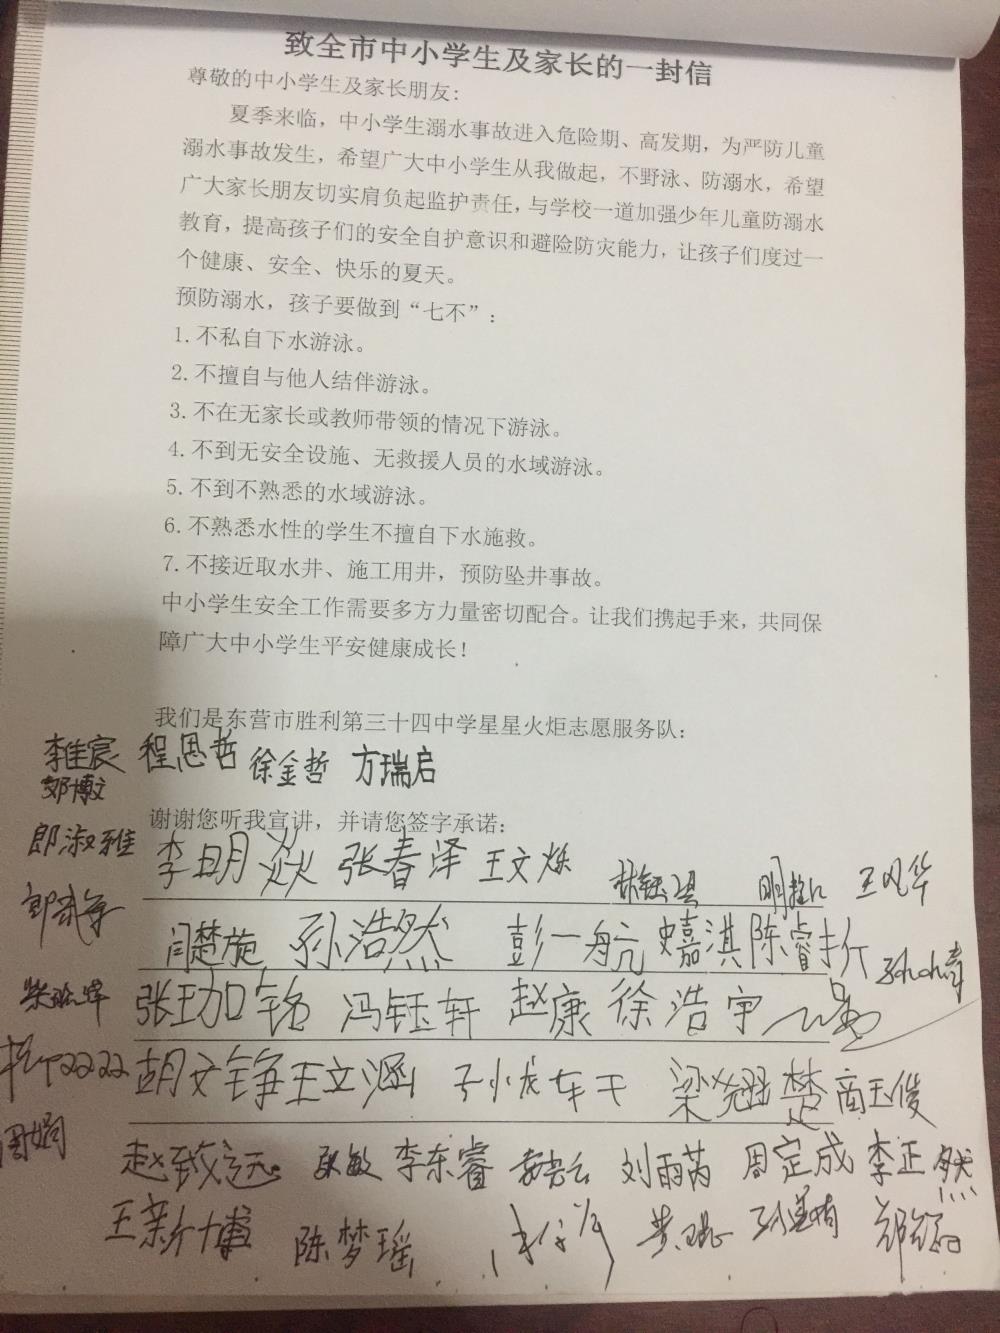 致全市中小学生及家长的一封信
尊敬的中小学生及家长朋友:
夏季来临，中小学生溺水事故进入危险期、高发期，为严防儿童
溺水事故发生，希望广大中小学生从我做起，不野泳、防溺水，希望
广大家长朋友切实肩负起监护责任，与学校一道加强少年儿童防溺水
教育，提高孩子们的安全自护意识和避险防灾能力，让孩子们度过一
个健康、安全、快乐的夏天。
预防溺水，孩子要做到“七不”:
1. 不私自下水游泳。
2. 不擅自与他人结伴游泳。
3. 不在无家长或教师带领的情况下游泳。
4. 不到无安全设施、无救援人员的水域游泳。
5. 不到不熟悉的水域游泳。
6. 不熟悉水性的学生不擅自下水施救。
7. 不接近取水井、施工用井，预防坠井事故。
中小学生安全工作需要多方力量密切配合。让我们携起手来，共同保
障广大中小学生平安健康成长！
我们是东营市胜利第三十四中学星星火炬志愿服务队:
李佳宸 程思哲 徐金哲 方瑞启
郭博文
谢谢您听我宣讲，并请您签字承诺:
郎淑雅 李明焱 张春泽 王文烁
王风华
闫楚旋 孙浩然 彭一航 陈睿
冯钰轩 赵康 徐浩宇
胡文铮 王文涵 车干 梁翘楚 商玉俊
周娟
赵致远 张敏 李东睿 刘雨芮 周定成 李正然
王新博 陈梦瑶 黄琨